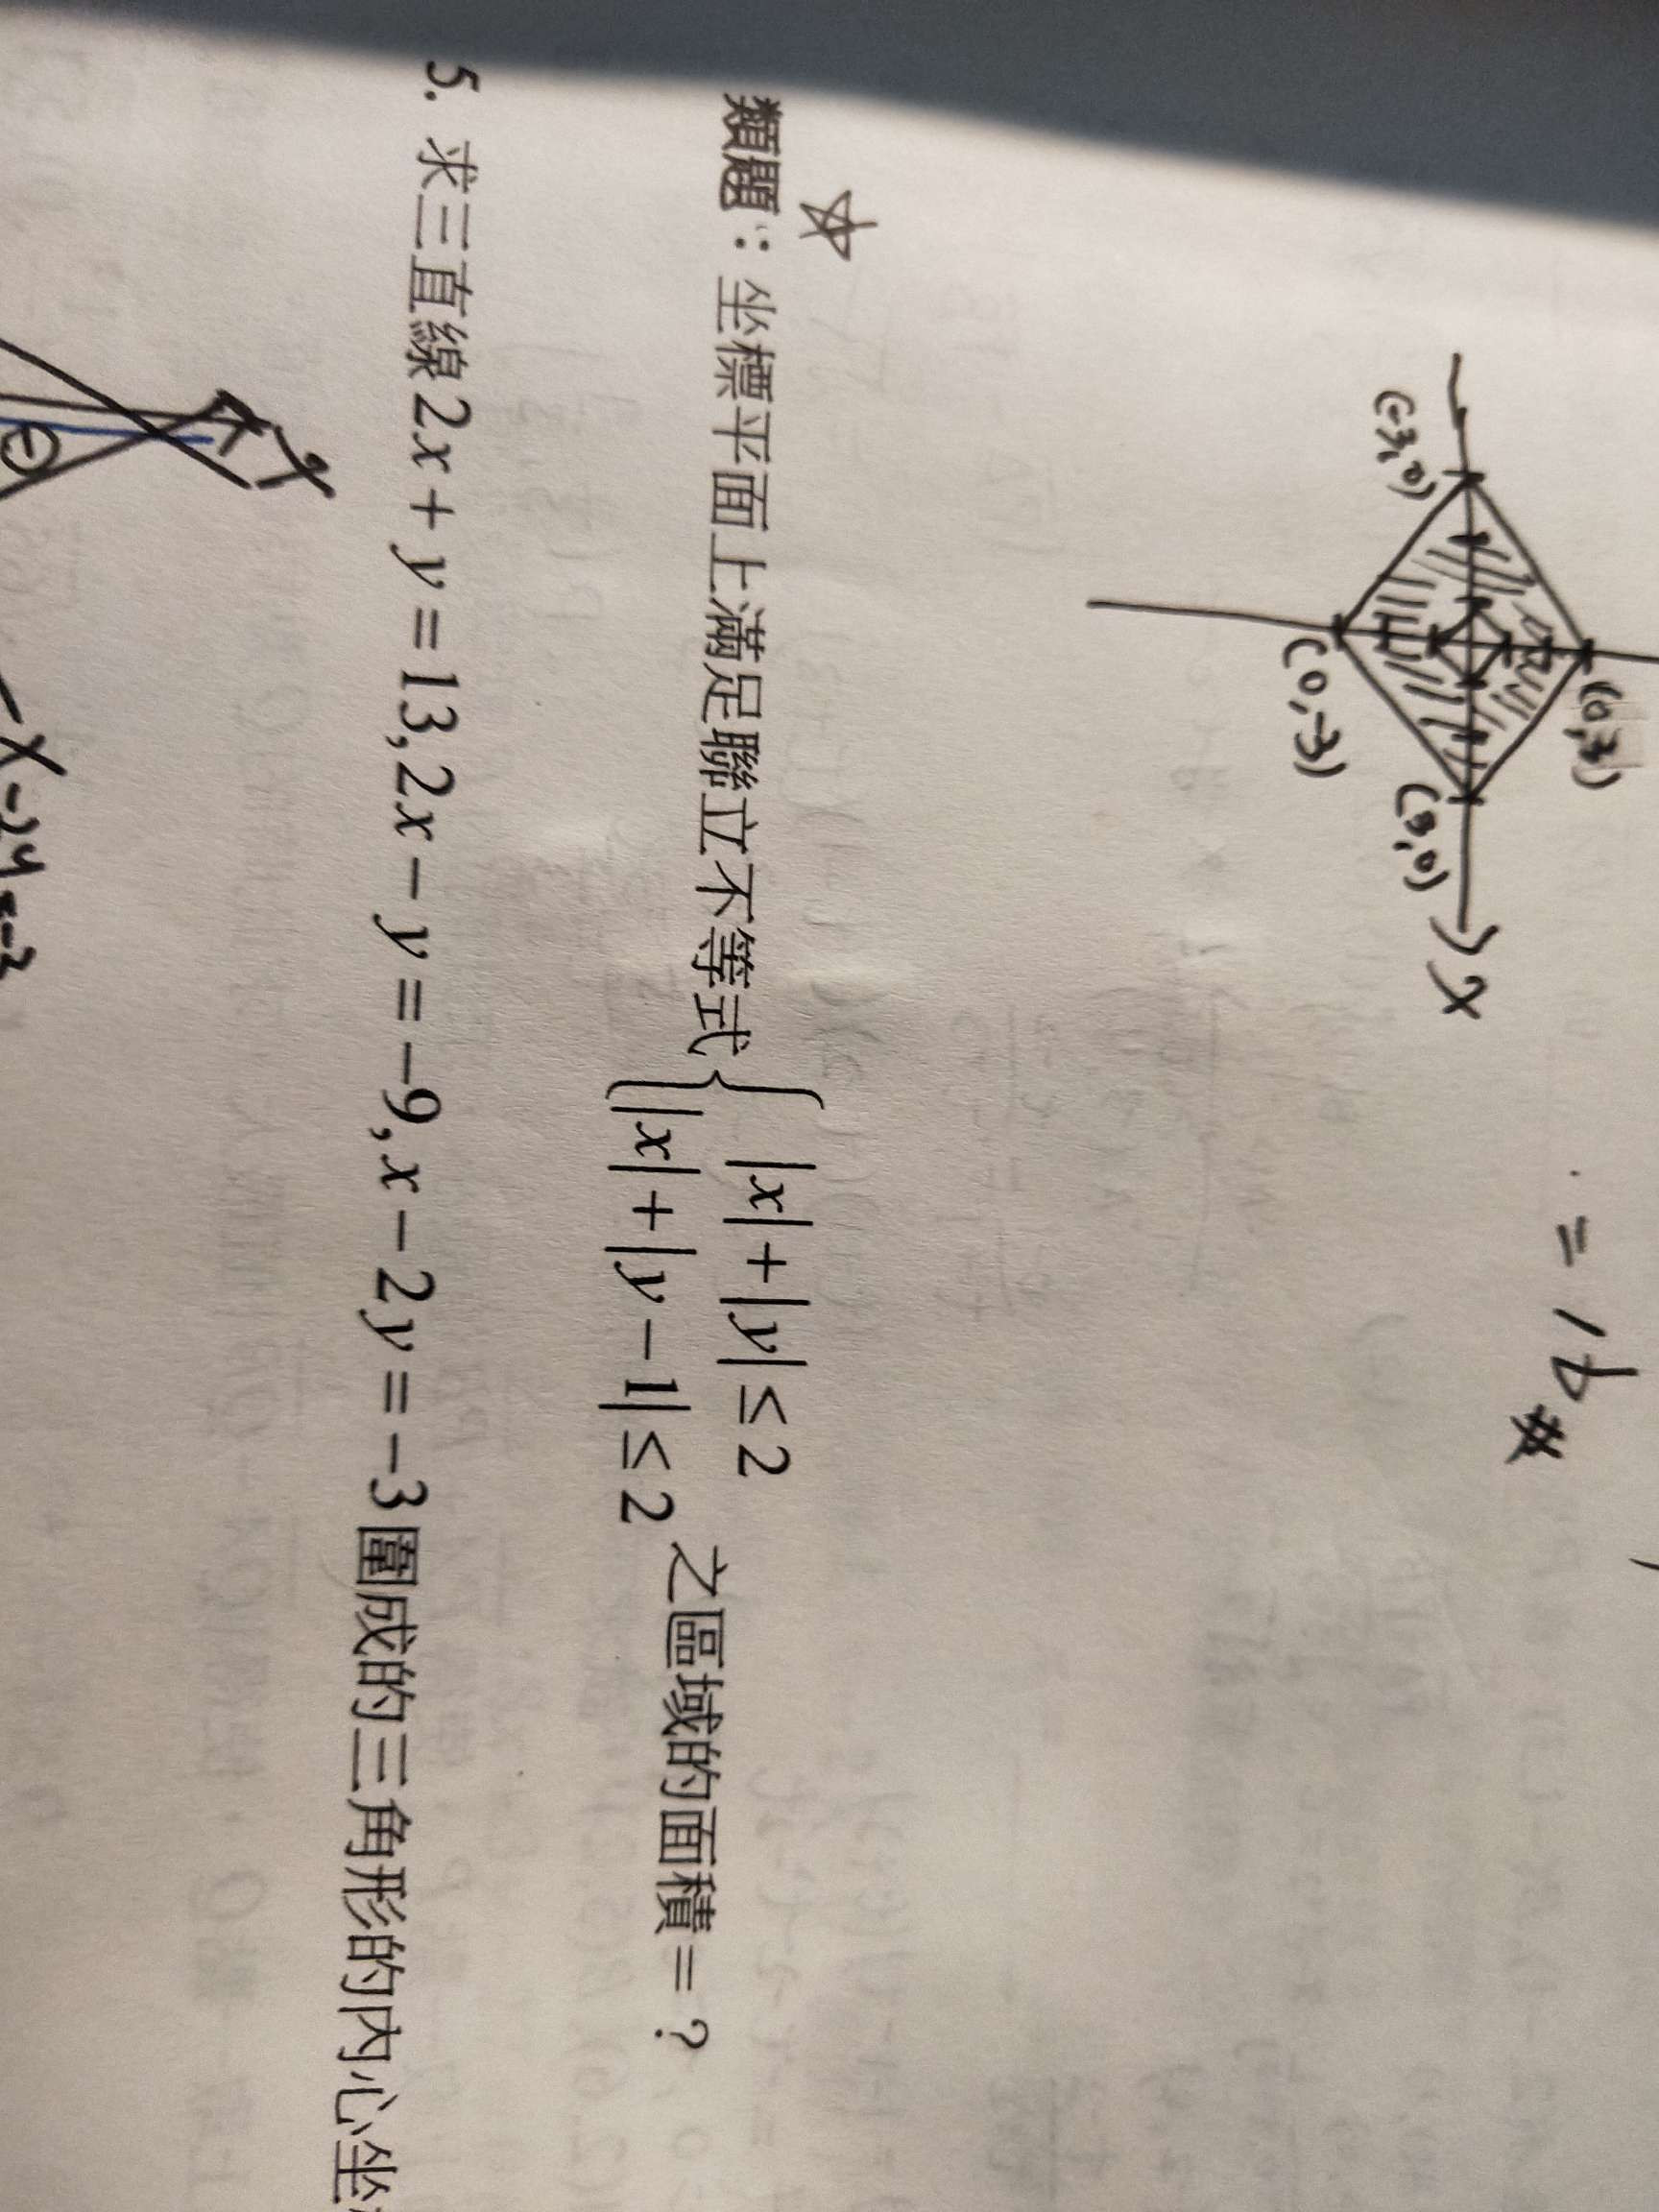 = 16 #
(0,3)
(-3,0)
(3,0)
x
(0,-3)
☆
類題：坐標平面上滿足聯立不等式{|x|+|y|≤2
|x|+|y−1|≤2 之區域的面積=？
5. 求三直線2x+y=13,2x−y=−9,x−2y=−3圍成的三角形的內心坐
x-2y=-3